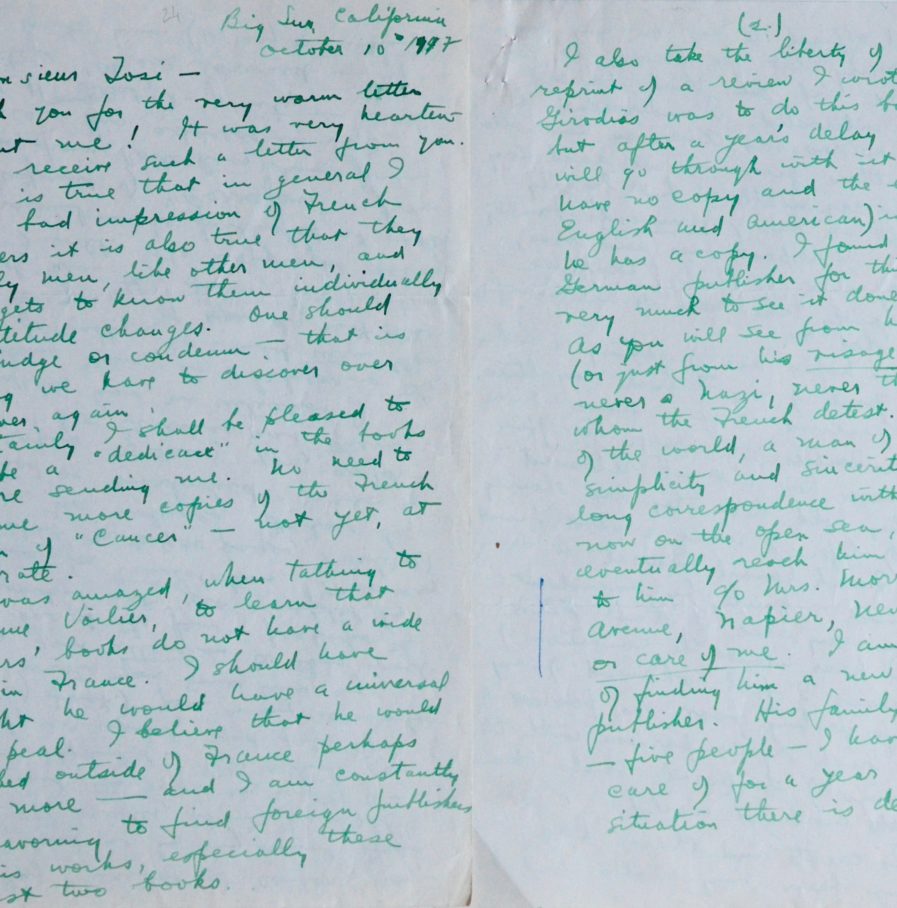 24
Big Sur, California
October 10th 1947
nsieur Tosi —
k you for the very warm letter
ut me! It was very hearten-
receive such a letter from you.
is true that in general I
bad impression of French
ers it is also true that they
ly men, like other men, and
gets to know them individually
titude changes. One should
judge or condemn — that is
g we have to discover over
ver again.
tainly I shall be pleased to
be a "dedicace" in the books
re sending me. No need to
me more copies of the French
n of "Cancer" — not yet, at
rate.
was amazed, when talking to
me Voilier, to learn that
rs' books do not have a wide
in France. I should have
ght he would have a universal
peal. I believe that he would
ed outside of France perhaps
more — and I am constantly
avoring to find foreign publishers
is works, especially these
st two books.
(2.)
I also take the liberty of
reprint of a review I wrote
Girodias was to do this bo
but after a year's delay
will go through with it
have no copy and the
English and American) i
he has a copy. I found
German publisher for thi
very much to see it done
As you will see from h
(or just from his visage
never a Nazi, never th
whom the French detest.
of the world, a man of
simplicity and sincerit
long correspondence with
now on the open sea,
eventually reach him
to him c/o Mrs. Morr
Avenue, Napier, New
or care of me. I am
of finding him a new
publisher. His family
— five people — I hav
care of for a year
situation there is de